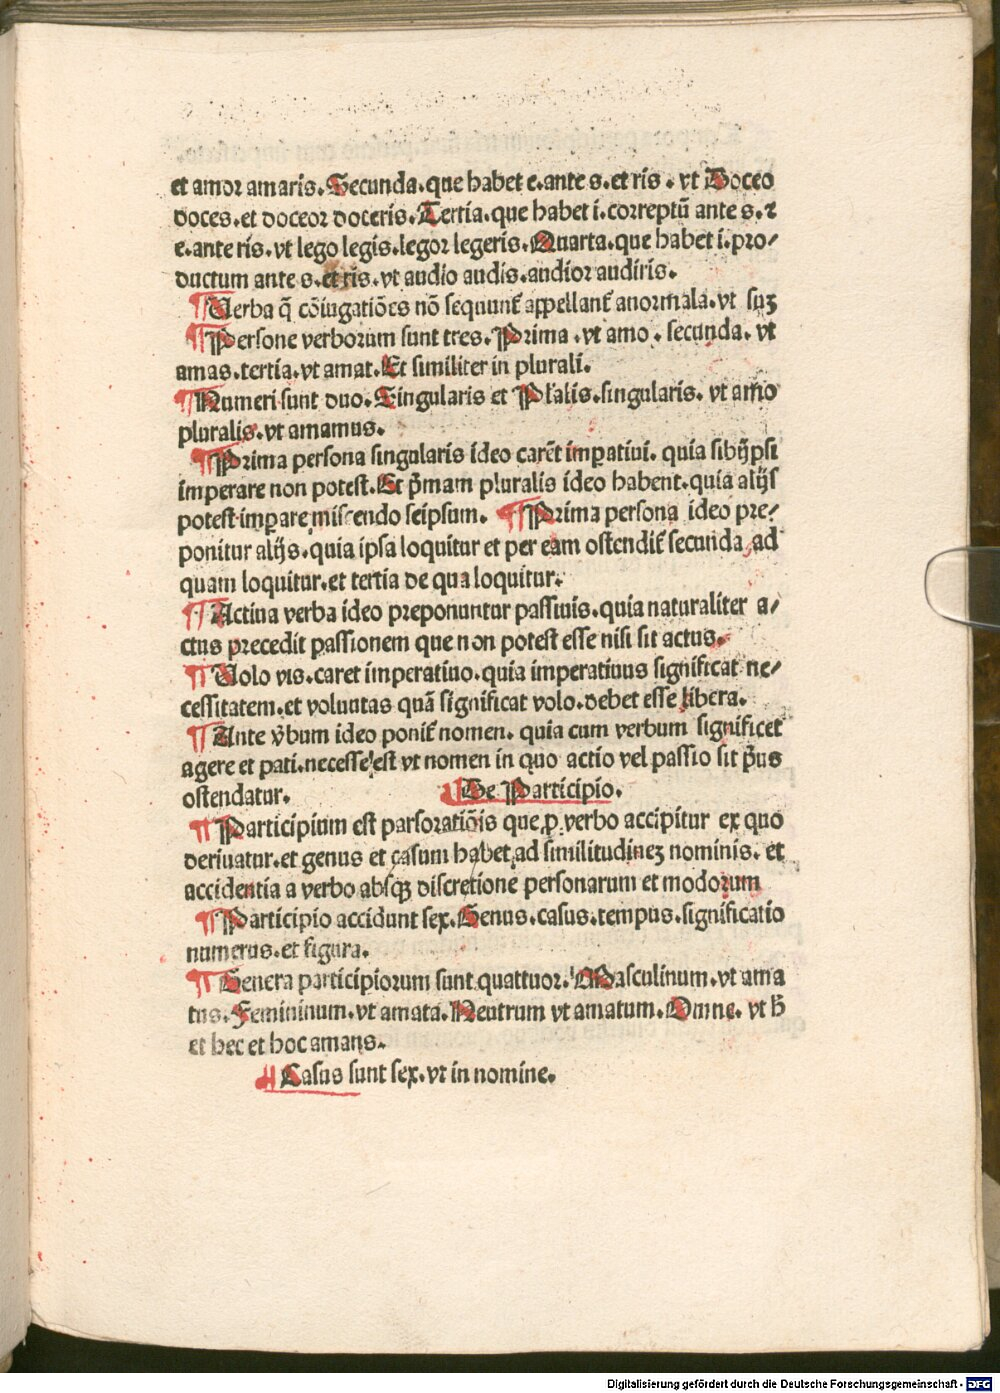 et amor amaris. Secunda. que habet e. ante s. et ris. vt Doceo
doces. et doceor doceris. Tertia. que habet i. correptū ante s. ⁊
e. ante ris. vt lego legis. legor legeris. Quarta. que habet i. pro/
ductum ante s. et ris. vt audio audis. audior audiris.
¶ Uerba q̄ cōiugatiōes nō sequunt᷑ appellant᷑ anormala. vt suꝫ
¶ Persone verborum sunt tres. Prima. vt amo. secunda. vt
amas. tertia. vt amat. Et similiter in plurali.
¶ Numeri sunt duo. Singularis et Pl'alis. singularis. vt amo
pluralis. vt amamus.
¶ Prima persona singularis ideo carēt imꝑatiui. quia sibijpsi
imperare non potest. Et p̄mam pluralis ideo habent. quia alijs
potest imꝑare miscendo seipsum. ¶ Prima persona ideo pre/
ponitur alijs. quia ipsa loquitur et per eam ostendit᷑ secunda ad
quam loquitur. et tertia de qua loquitur.
¶ Actiua verba ideo preponuntur passiuis. quia naturaliter a/
ctus precedit passionem que non potest esse nisi sit actus.
¶ Uolo vis. caret imperatiuo. quia imperatiuus significat ne/
cessitatem. et voluntas quā significat volo. debet esse libera.
¶ Ante v̄bum ideo ponit᷑ nomen. quia cum verbum significet
agere et pati. necesse est vt nomen in quo actio vel passio sit p̄us
ostendatur. De Participio.
¶ Participium est pars oratiōis que ꝓ verbo accipitur ex quo
deriuatur. et genus et casum habet ad similitudineꝫ nominis. et
accidentia a verbo absqꝫ discretione personarum et modorum
¶ Participio accidunt sex. Genus. casus. tempus. significatio
numerus. et figura.
¶ Genera participiorum sunt quattuor. Masculinum. vt ama
tus. Femininum. vt amata. Neutrum vt amatum. Omne. vt h̄
et hec et hoc amans.
¶ Casus sunt sex. vt in nomine.
Digitalisierung gefördert durch die Deutsche Forschungsgemeinschaft - DFG